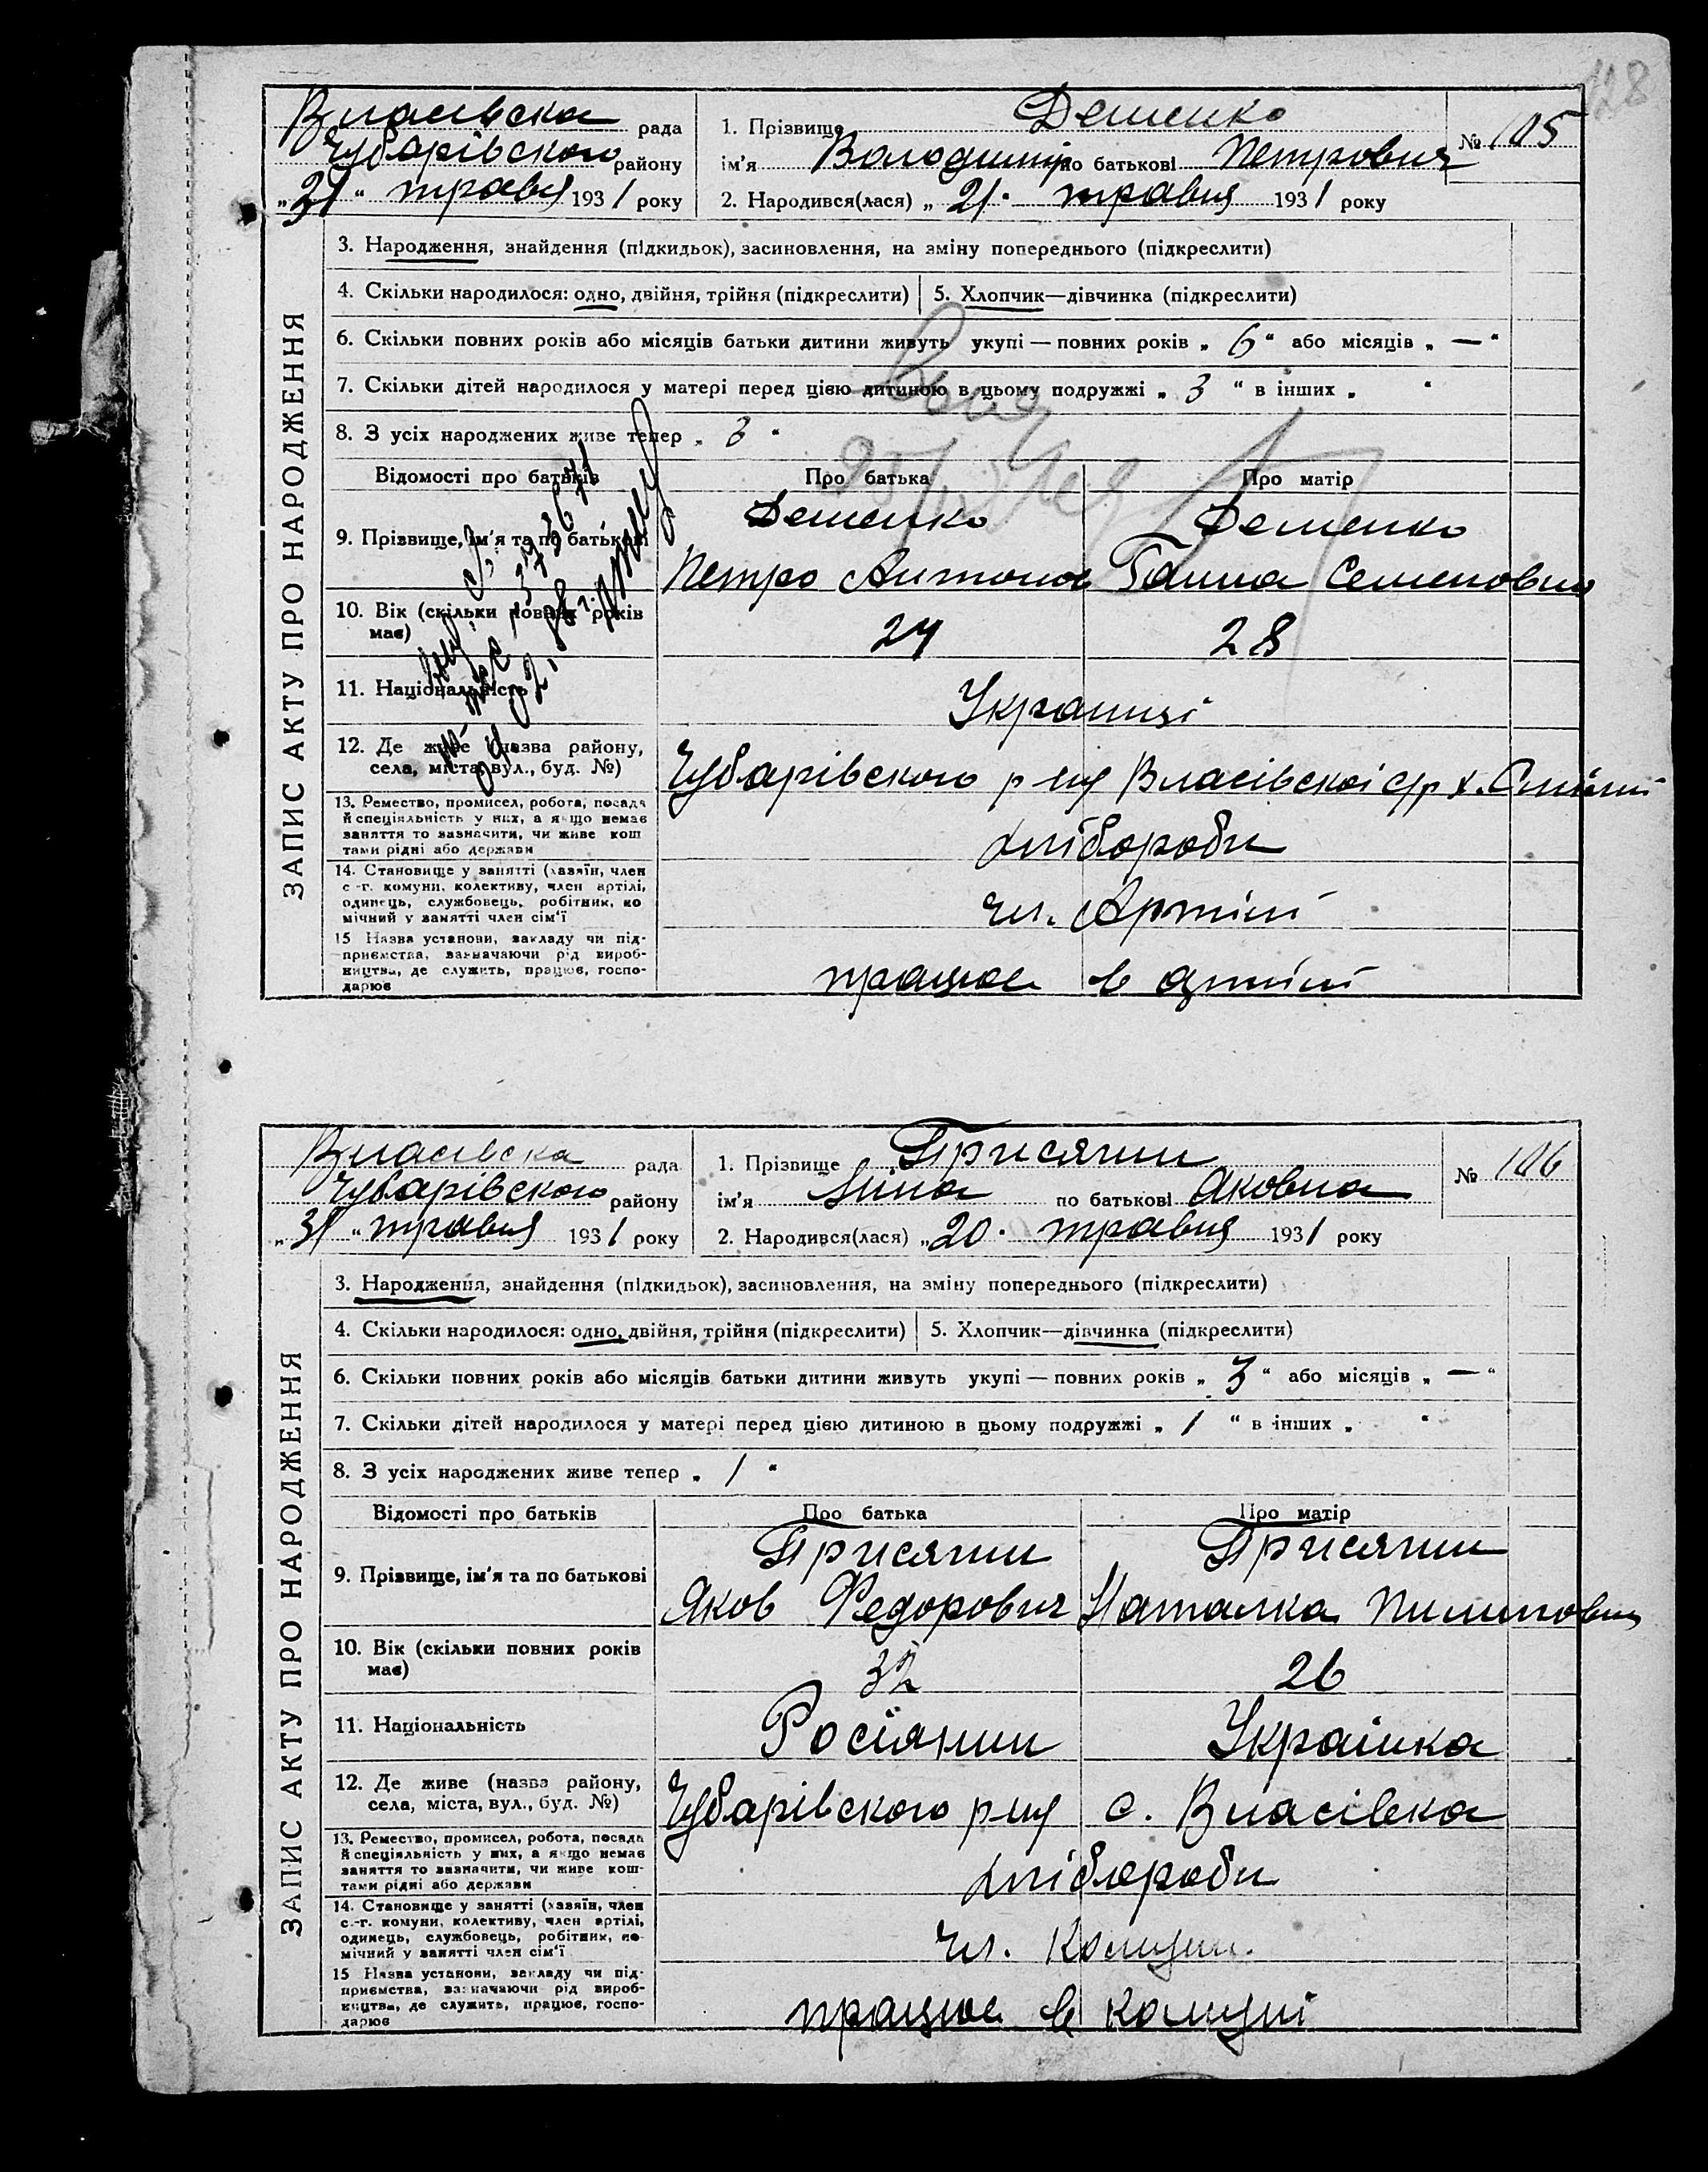 128
Власівска рада
Чубарівского району
„31“ травня 1931 року
1. Прізвище Деменко
ім'я Володимир по батькові Петрович
№ 105
2. Народився(лася) „21“ травня 1931 року
ЗАПИС АКТУ ПРО НАРОДЖЕННЯ
3. Народження, знайдення (підкидьок), засиновлення, на зміну попереднього (підкреслити)
4. Скільки народилося: одно, двійня, трійня (підкреслити)
5. Хлопчик—дівчинка (підкреслити)
6. Скільки повних років або місяців батьки дитини живуть укупі — повних років „6“ або місяців „—“
7. Скільки дітей народилося у матері перед цією дитиною в цьому подружжі „3“ в інших „ “
8. З усіх народжених живе тепер „3“
Відомості про батьків
Про батька
Про матір
9. Прізвище, ім'я та по батькові
Деменко
Деменко
Петро Антонов
Ганна Семеновна
10. Вік (скільки повних років
має)
24
28
11. Національність
Украинці
12. Де живе (назва району,
села, міста, вул., буд. №)
Чубарівского р-ну Власівскої с/р х.
13. Ремество, промисел, робота, посада
й спеціяльність у них, а якщо немає
заняття то зазначити, чи живе кош
тами рідні або держави
хлібороби
14. Становище у занятті (хазяїн, член
с-г. комуни, колективу, член артілі,
одинець, службовець, робітник, по
мічний у занятті член сім'ї
чл. Артілі
15 Назва установи, закладу чи під-
приємства, зазначаючи рід вироб-
ництва, де служить, працює, госпо-
дарює
працює в артілі
Власівска рада
Чубарівского району
„31“ травня 1931 року
1. Прізвище Присягин
ім'я Ліна по батькові Яковна
№ 106
2. Народився(лася) „20“ травня 1931 року
ЗАПИС АКТУ ПРО НАРОДЖЕННЯ
3. Народження, знайдення (підкидьок), засиновлення, на зміну попереднього (підкреслити)
4. Скільки народилося: одно, двійня, трійня (підкреслити)
5. Хлопчик—дівчинка (підкреслити)
6. Скільки повних років або місяців батьки дитини живуть укупі — повних років „3“ або місяців „—“
7. Скільки дітей народилося у матері перед цією дитиною в цьому подружжі „1“ в інших „ “
8. З усіх народжених живе тепер „1“
Відомості про батьків
Про батька
Про матір
9. Прізвище, ім'я та по батькові
Присягин
Присягин
Яков Федорович
Наталка Пилиповна
10. Вік (скільки повних років
має)
32
26
11. Національність
Росіянин
Украінка
12. Де живе (назва району,
села, міста, вул., буд. №)
Чубарівского р-ну с. Власівка
13. Ремество, промисел, робота, посада
й спеціяльність у них, а якщо немає
заняття то зазначити, чи живе кош-
тами рідні або держави
хлібороби
14. Становище у занятті (хазяїн, член
с.-г. комуни, колективу, член артілі,
одинець, службовець, робітник, по-
мічний у занятті член сім'ї
чл. Комуни.
15 Назва установи, закладу чи під-
приємства, зазначаючи рід вироб-
ництва, де служить, працює, госпо-
дарює
працює в комуні